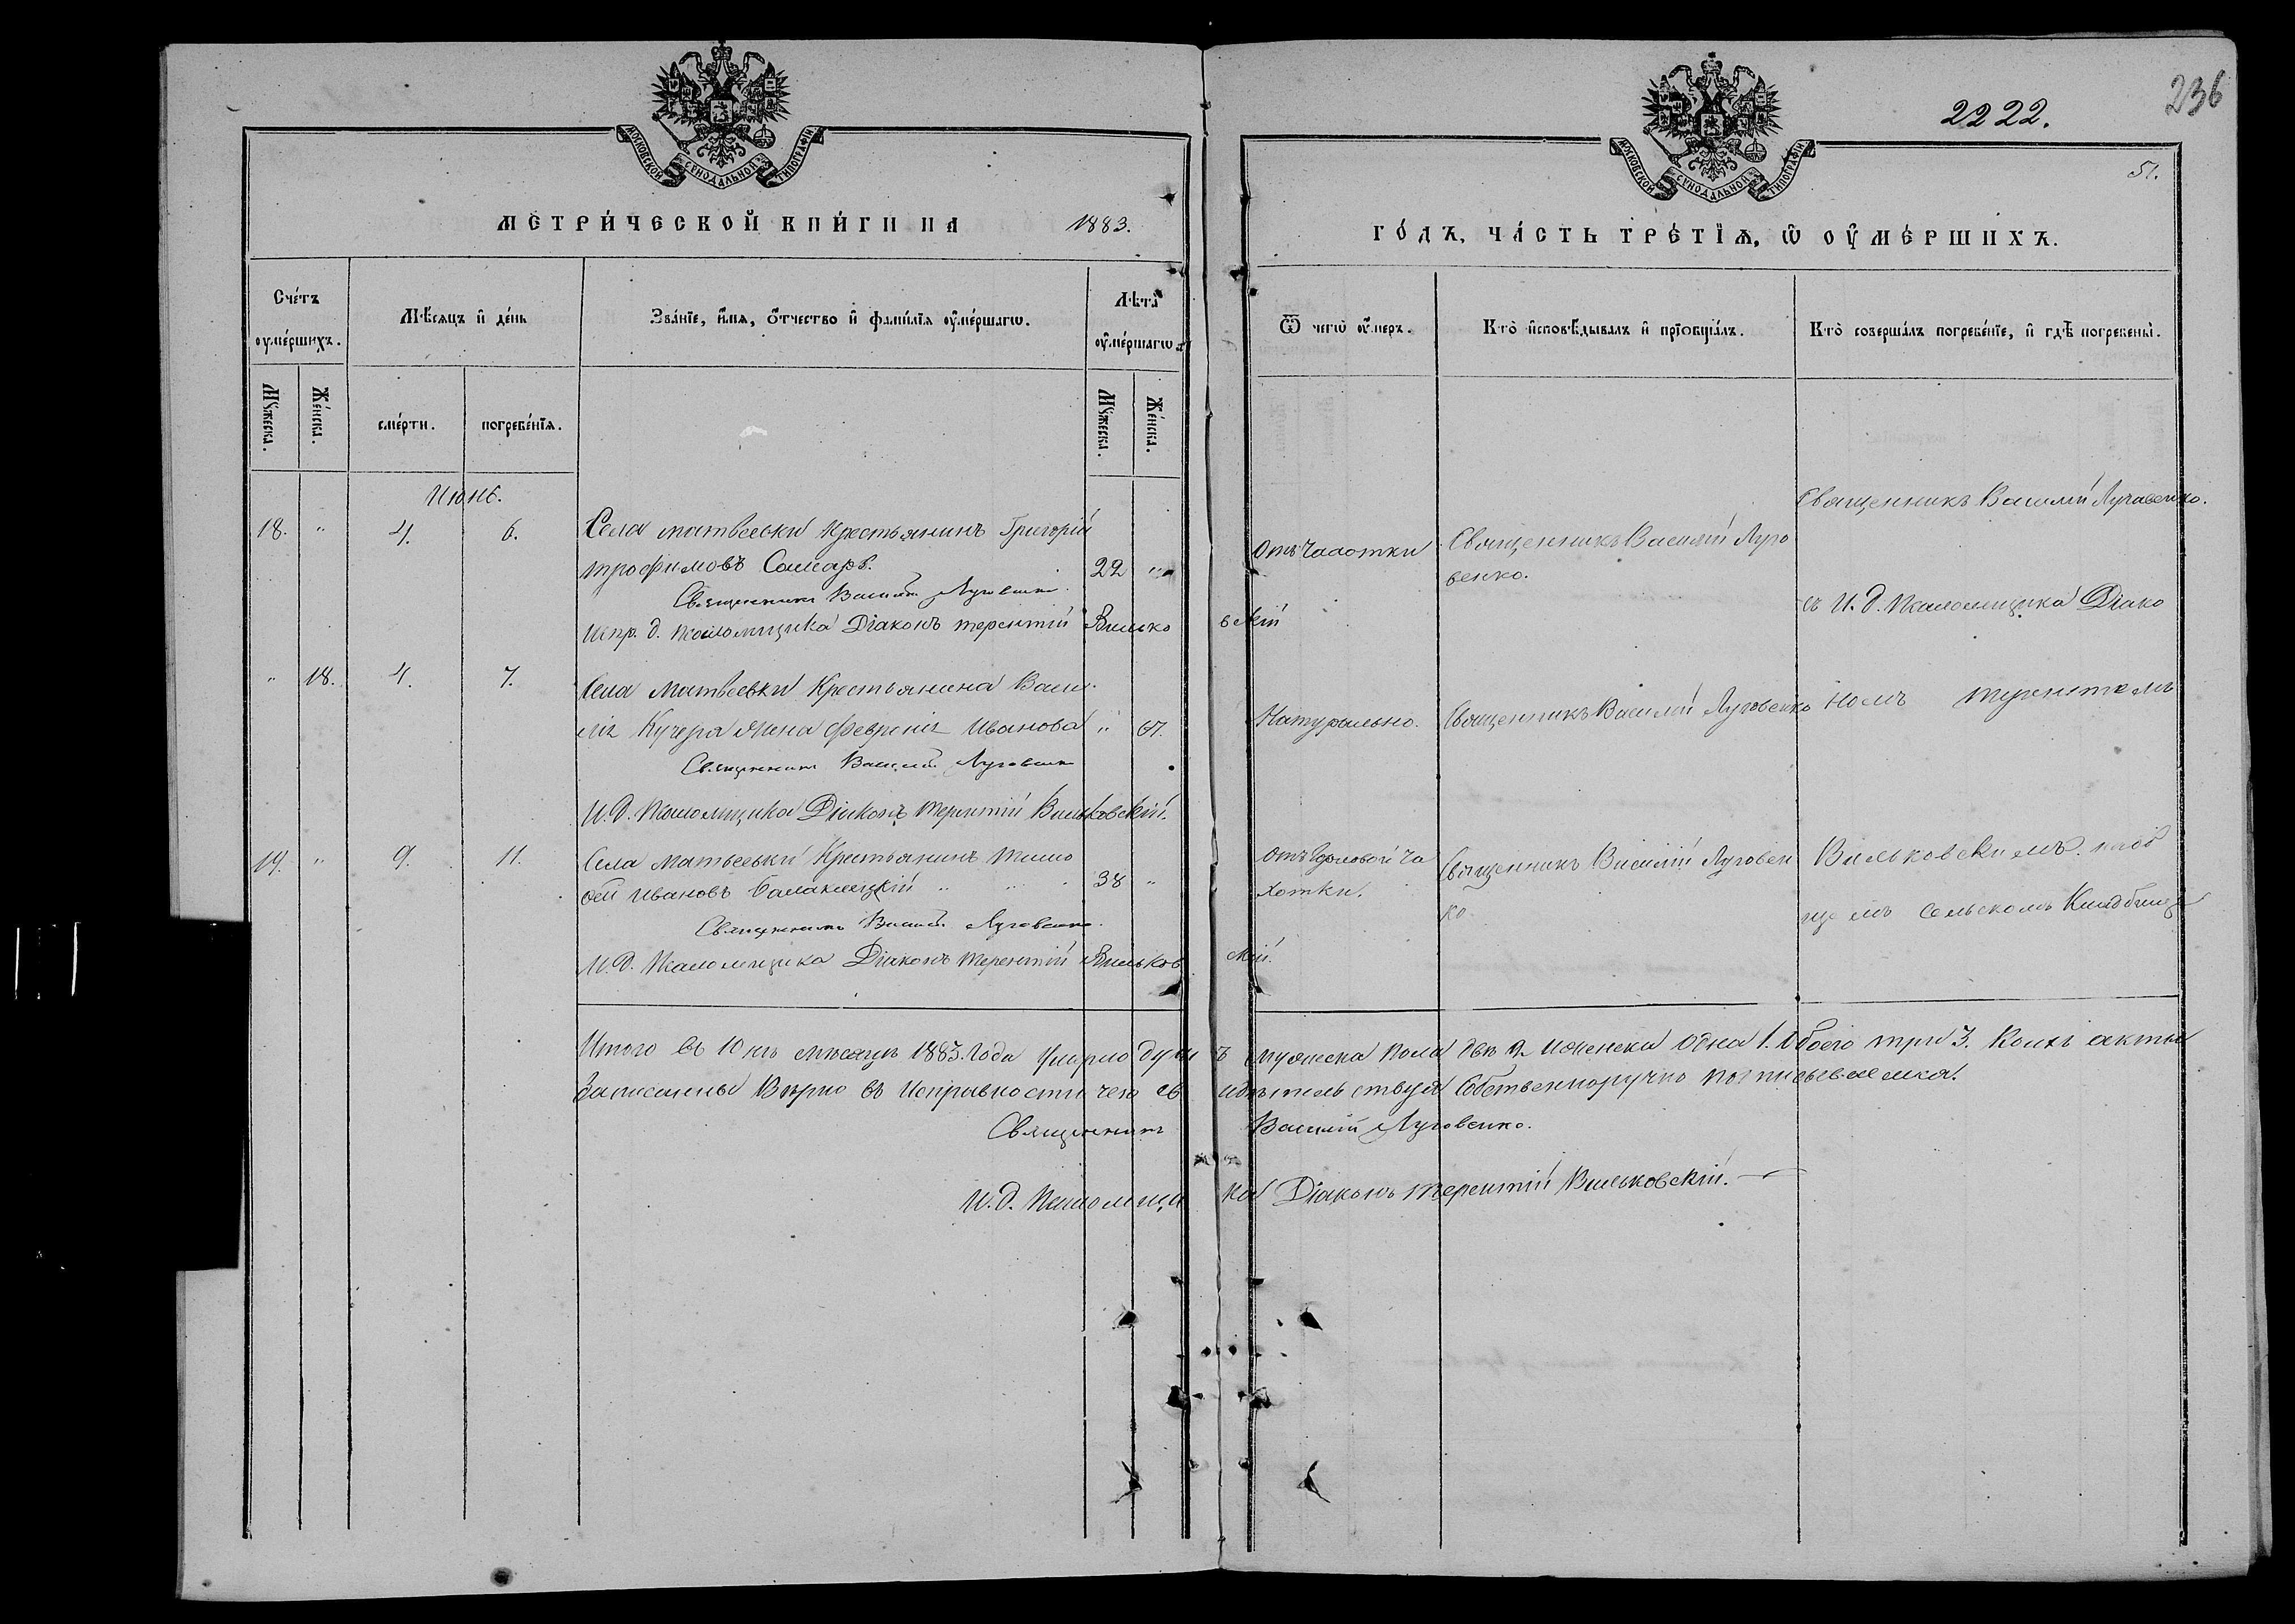 236
2222.
51.
МОСКОВСКОЙ СѴНОДАЛЬНОЙ ТИПОГРАФІИ
МОСКОВСКОЙ СѴНОДАЛЬНОЙ ТИПОГРАФІИ
МЕТРИ́ЧЕСКОЙ КНИ́ГИ НА 1883.
ГО́ДЪ, ЧА́СТЬ ТРЕ́ТІѦ, Ѡ҆ ОУ҆МЕ́РШИХЪ.
Сче́тъ оумéршихъ.
Мѣ́сяцъ и҆ де́нь
Зва́нїе, и҆́мѧ, ѻ҆́тчество и҆ фамѝлїѧ оу҆ме́ршагѡ.
Лѣта̀ оу҆ме́ршагѡ.
Ѿ чегѡ̀ оу҆́меръ.
Кто̀ и҆сповѣ́дывалъ и҆ прїѡбща́лъ.
Кто̀ соверша́лъ погребе́нїе, и҆ гдѣ̀ погребены̀.
Мꙋ́жеска.
Же́нска.
сме́рти.
погребе́нїѧ.
Мꙋ́жеска.
Же́нска.
Июнь.
18. " 4. 6. Села Матвеевки Крестьянинъ Григорій
Трофимовъ Самарь. 22 "
Священникъ Василій Луговенко.
Испр. д. Псаломщика Діаконъ Терентій Вилько вскій
Отъ Чахотки
Священникъ Василій Луго
венко.
Священникъ Василій Луговенко.
съ И. д. Псаломщика Діако
" 18. 4. 7. Села Матвеевки Крестьянина Васи
лія Кучера Жена Феврокія Иванова "
Священникъ Василій Луговенко
И. д. Псаломщика Діаконъ Терентій Вильковскій.
Натурально. Священникъ Василій Луговенко
номъ Терентіемъ
19. " 9. 11. Села Матвеевки Крестьянинъ Тимо
фей Ивановъ Балаклицкій " 38 "
Священникъ Василій Луговенко.
И. д. Псаломщика Діаконъ Терентій Вильков скій.
Отъ Ча
хотки.
Священникъ Василій Луговен
ко
Вильковскимъ.
Сельскомъ Кладбищѣ
Итого въ Юнѣ мѣсяцѣ 1883. Года Умерло душ ъ мужеска пола двѣ 2. Женска Одна 1. Обоего три 3. Коихъ акты
Записанны Вѣрно въ Исправности чего св идѣтельствуя Собственноручно
Священникъ Василій Луговенко.
И. д. Псаломщи ка Діаконъ Терентій Вильковскій.